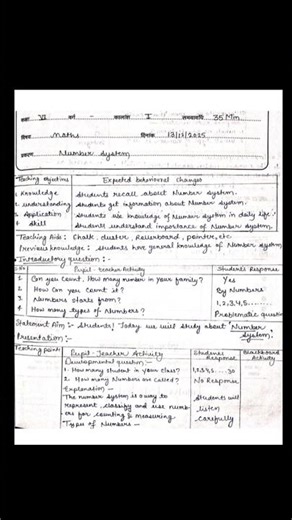 कक्षा VI वर्ग - कालांश I समयावधि 35 Min
विषय Maths दिनांक 13/11/2025
प्रकरण Number System
Teaching objectives Expected behavioural changes
1 Knowledge Students recall about Number System.
2 understanding Students get information about Number System.
3 Application Students use knowledge of Number System in daily life.
4 Skill Students understand importance of Number System.
Teaching Aids : Chalk, duster, Rollerboard, pointer, etc
Previous knowledge : Students have general knowledge of Number System
Introductory question :-
S.No Pupil-Teacher Activity Students Response
1 Can you count, How many number in your family? Yes
2 How Can you Count it? By Numbers
3 Numbers Starts from? 1,2,3,4,5......
4 How many Types of Numbers? Problematic question
Statement Aim :- Students! Today we will study about Number System.
Presentation :-
Teaching point Pupil-Teacher Activity Students Response Blackboard Activity
Developmental question :-
1. How many student in your class? 1,2,3,4,5.....30
2. How many Numbers are called? No Response
Explanation -
The number System is a way to Students will
represent, classify and use numb- listen
ers for counting & measuring. carefully
Types of Numbers -